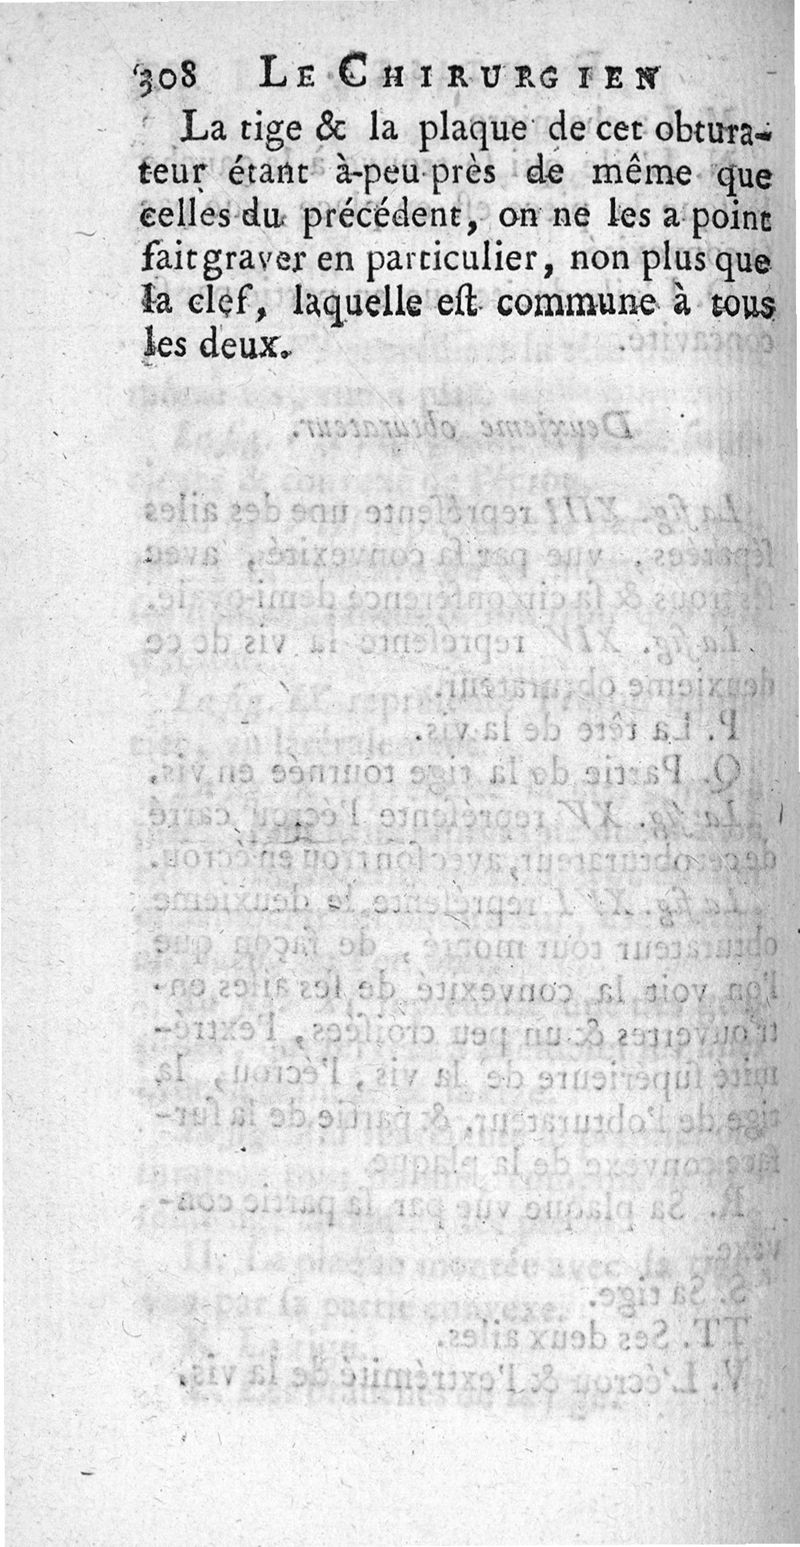 308 LE CHIRURGIEN
La tige & la plaque de cet obtura-
teur étant à-peu près de même que
celles du précédent, on ne les a point
fait graver en particulier, non plus que
la clef, laquelle est commune à tous
les deux.